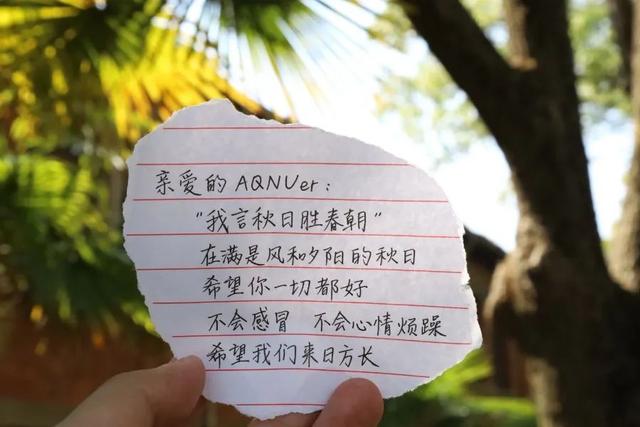 亲爱的 AQNUer：
“我言秋日胜春朝”
在满是风和夕阳的秋日
希望你一切都好
不会感冒 不会心情烦躁
希望我们来日方长